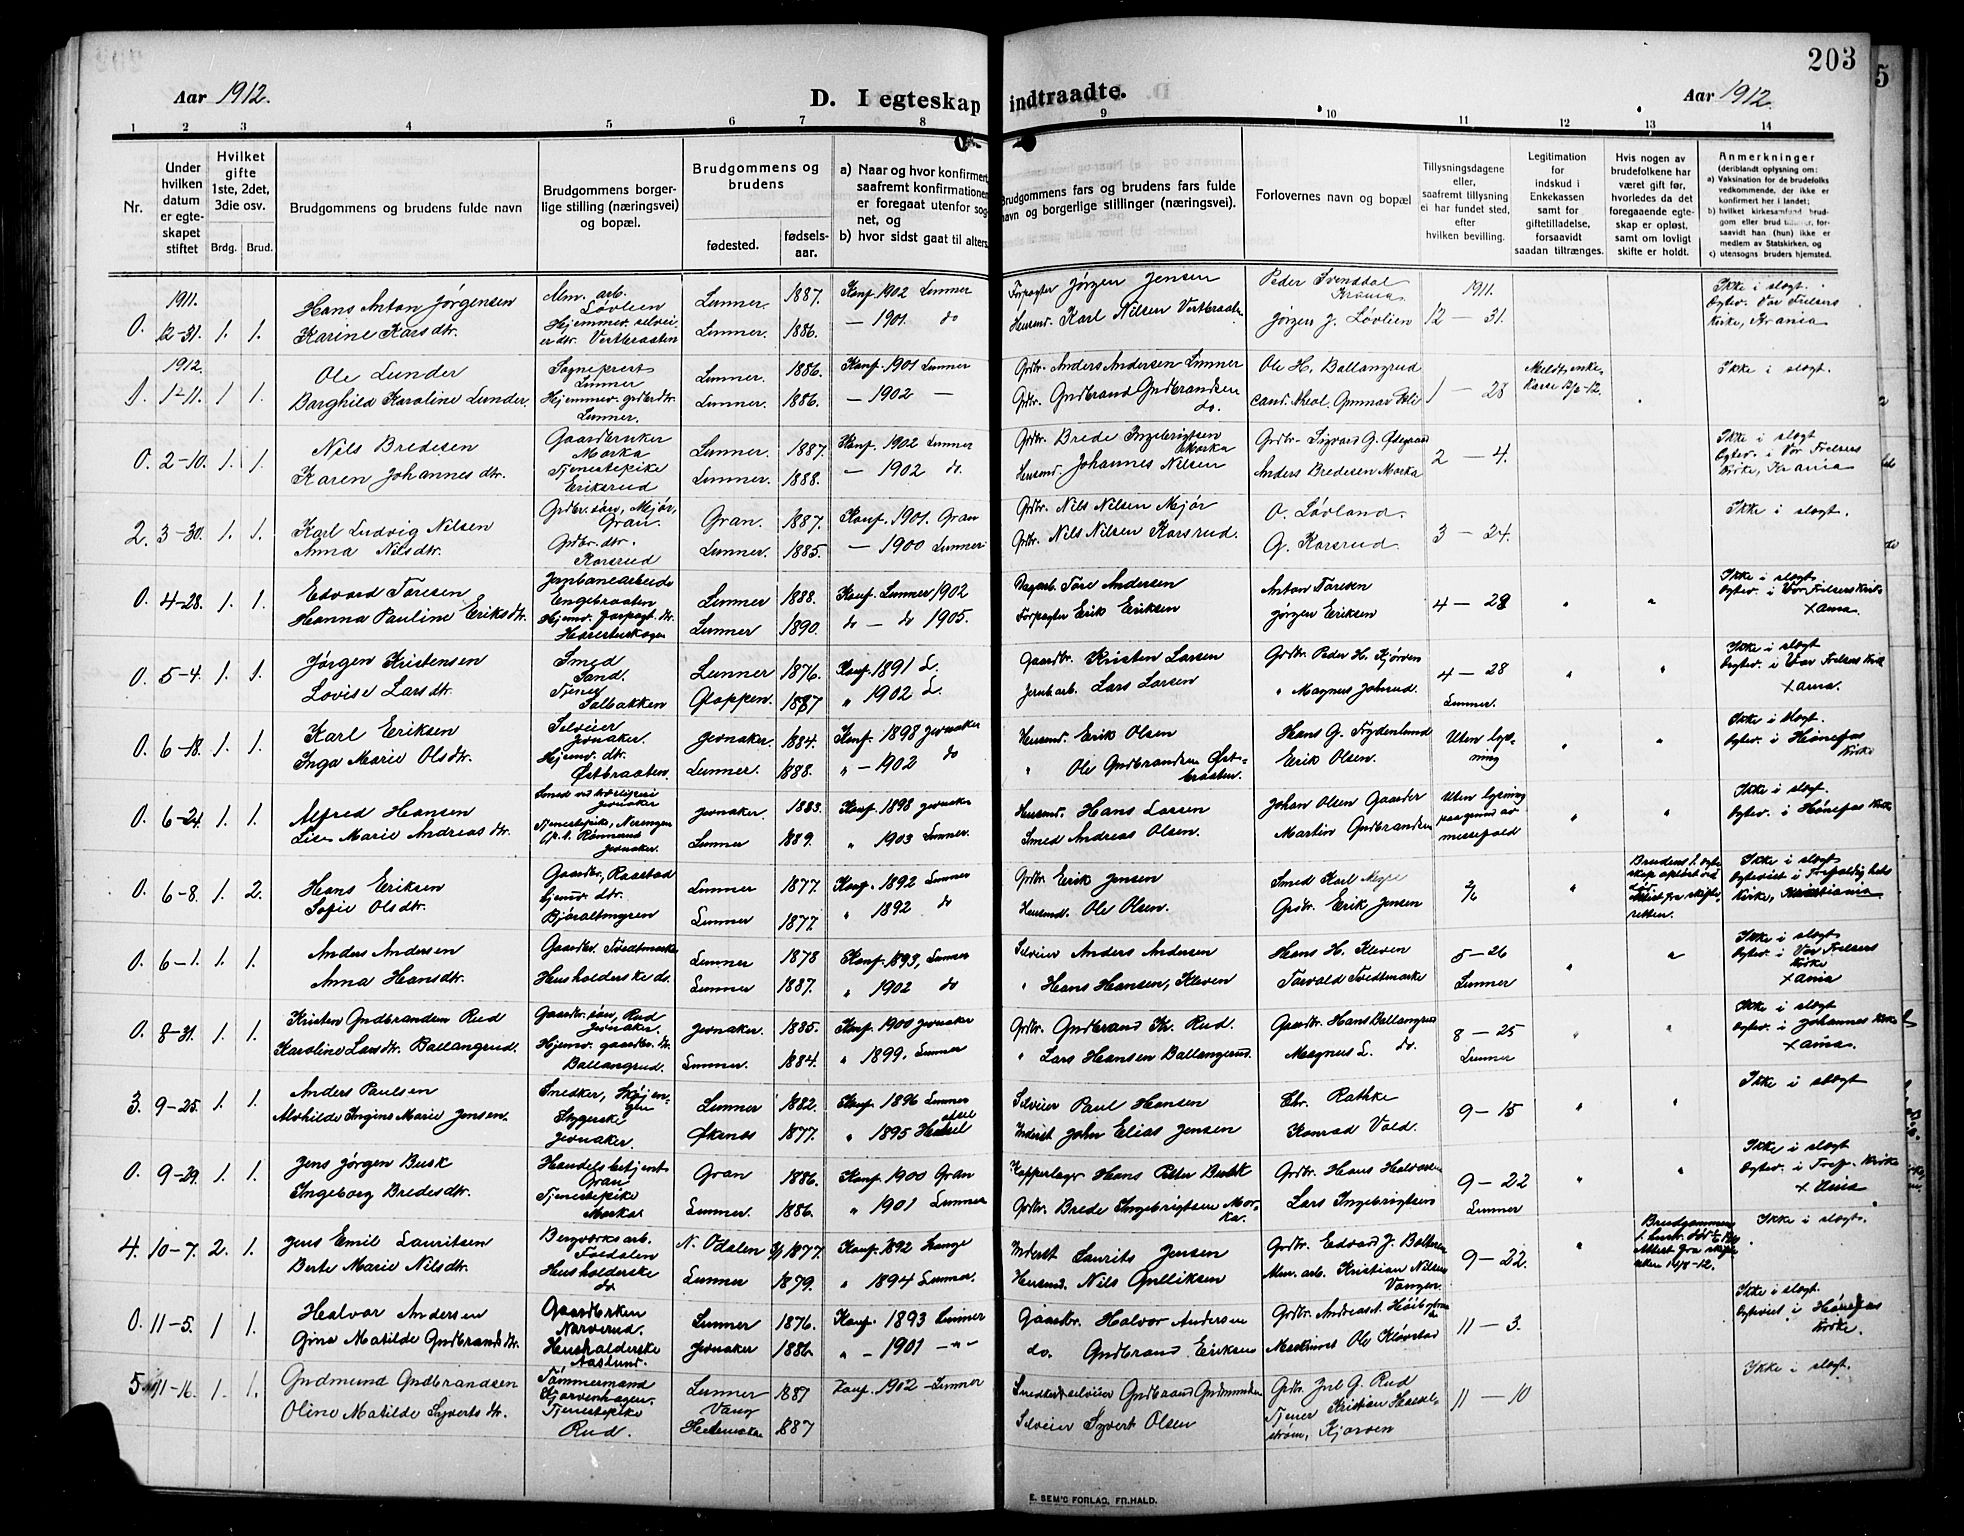 203
Aar 1912.
D. I egteskap indtraadte.
Aar 1912.
1 2 3 4 5 6 7 8 9 10 11 12 13 14
Nr.
Under hvilken datum er egteskapet stiftet
Hvilket gifte 1ste, 2det, 3die osv.
Brdg. Brud.
Brudgommens og brudens fulde navn
Brudgommens borgerlige stilling (næringsvei) og bopæl.
Brudgommens og brudens
fødested. fødselsaar.
a) Naar og hvor konfirmert, saafremt konfirmationen er foregaat utenfor sognet, og
b) hvor sidst gaat til alters.
Brudgommens fars og brudens fars fulde navn og borgerlige stillinger (næringsvei).
Forlovernes navn og bopæl
Tillysningsdagene eller, saafremt tillysning ei har fundet sted, efter hvilken bevilling.
Legitimation for indskud i Enkekassen samt for giftetilladelse, forsaavidt saadan tiltrænges.
Hvis nogen av brudefolkene har været gift før, hvorledes da det foregaaende egteskap er opløst, samt om lovligt skifte er holdt.
Anmerkninger (deriblandt oplysning om:
a) Vaksination for de brudefolks vedkommende, der ikke er konfirmert her i landet;
b) hvilket kirkesamfund brudgom eller brud tilhører, forsaavidt han (hun) ikke er medlem av Statskirken, og
c) utensogns bruders hjemsted.
1911. Hans Anton Jörgensen Alm. arb. Lövlien Lunner 1887. Konf. 1902 Lunner Forpagter Jörgen Jensen Peder Svenddal Krania 1911. Ikke i slægt
0. 12-31. 1. 1. Karine Karsdtr. Lunner. 1886. — 1901. do Husmd. Karl Nilsen Vertbraaten Jörgen J. Lövlien 12 — 31 Vor Frelsers Kirke, Krania
1912. Ole Lunder Sogneprest Lunner Lunner. 1886. Konf. 1901 Lunner Grdbr. Anders Andersen Lunner Ole H. Ballangrud Ikke i slægt.
1. 1-11. 1 1 Barghild Karoline Lunder Lunner. Lunner. 1886. — 1902 — Grdbr. Gudbrand Gudbrandsen do. cand. theol. Gunnar 1 — 28
Nils Bredesen Gaardbruker Morka Lunner. 1887. Konf. 1902 Lunner Grdbr. Brede Ingebrigtsen Morka Grdbr. Sigvard G. Ödegaard Ikke i slægt
0. 2-10. 1. 1. Karen Johannesdtr. Tjenestepike Eriksrud Lunner. 1888. — 1902 do. Husmd. Johannes Nilsen Anders Bredesen Morka 2 — 4. i Vor Frelsers Kirke, Krania
Karl Ludvig Nilsen Grdbr. sön, Mejör, Gran. Gran. 1887. Konf. 1901. Gran Grdbr. Nils Nilsen Mejör O. Lövland. Ikke i slægt.
2. 3-30. 1. 1. Anna Nilsdtr. Grdbr. dtr. Korsrud Lunner. 1885. — 1900 Lunner Grdbr. Nils Nilsen Korsrud. G. Korsrud. 3 — 24.
Edvard Toresen Jernbanearbeider Engebraaten Lunner 1888. Konf. Lunner 1902 Dagarb. Tore Andersen Anton Toresen Ikke i slægt
0. 4-28. 1. 1. Hanna Pauline Eriksdtr. Lunner 1890. do — do 1905. Forpagter Erik Eriksen Jörgen Eriksen 4 — 28 i Vor Frelsers Kirke Xania.
Jörgen Kristensen Smed Sand. Lunner 1876. Konf. 1891 L. Gaardbr. Kristen Larsen Grdbr. Peder H. Kjörven Ikke i slægt
0. 5-4. 1. 1. Lovise Larsdtr. Tjener Dalbakken Gloppen. 1887 " 1902 L. Jernb. arb. Lars Larsen " Magnus Johsrud. 4 — 28 Lunner. i Vor Frelsers Kirke Xania.
Karl Eriksen Selveier Jevnaker. Jevnaker. 1884. Konf. 1898 Jevnaker Husmd. Erik Olsen Hans G. Frydenlund Uten lysning Ikke i slægt.
0. 6-18. 1. 1. Inga Marie Olsdtr. Hjemv. dtr. Östbraaten. Lunner. 1888. " — 1902 do " Ole Gudbrandsen Östbraaten. Erik Olsen. i Hönefos Kirke
Alfred Hansen Smed Jevnaker Jevnaker. 1883. Konf. 1898 Jevnaker Husmd. Hans Larsen Johan Olsen Gaarder Uten lysning paa grund av messefald Ikke i slægt.
0. 6-24. 1. 1. Lise Marie Andreasdtr. Tjenestepike, Jevnaker. Lunner 1889. " 1903 Lunner. Smed Andreas Olsen. Martin Gudbrandsen i Hönefos Kirke
Hans Eriksen Gaardbr., Raastad Lunner 1877. Konf. 1892 Lunner Grdbr. Erik Jensen Smed Karl Brudens 1. egteskap oplöst Ikke i slægt
0. 6-8. 1. 2. Sofie Olsdtr. Lunner 1877. " 1892 do Husmd. Ole Olsen. Grdbr. Erik Jensen 2/6 Attest fra skifteretten. Trefoldighets Kirke, Kristiania
Anders Andersen Gaardbr. Tvedtmarke Lunner 1878 Konf. 1893, Lunner Selveier Anders Andersen Hans H. Kleven 5 — 26 Ikke i slægt
0. 6-1. 1. 1. Anna Hansdtr. Husholderske do. Lunner 1887. " 1902 do " Hans Hansen, Kleven Torvald Tvedtmarke Lunner i Vor Frelsers Kirke Xania
Kristen Gudbrandsen Rud Gaardbr. sön, Rud Jevnaker. Jevnaker 1885. Konf. 1900 Jevnaker Grdbr. Gudbrand Kr. Rud. Gaardbr. Hans Ballangrud 8 — 25 Ikke i slægt
0. 8-31. 1. 1. Karoline Larsdtr. Ballangrud. Hjemv. gaardbr. dtr. Ballangrud. Lunner. 1884. " 1899. Lunner " Lars Hansen Ballangrud. Magnus L. do. Lunner i Johannes Kirke Xania.
Anders Paulsen Snedker, Lunner 1882. Konf. 1896 Lunner Selveier Paul Hansen Chr. Rathke Ikke i slægt
3. 9-25. 1. 1. Alvhilde Ingine Marie Jensen. Jevnaker. Öksnes 1877. " 1895 Hadsel Inderst John Elias Jensen Konrad Vold. 9 — 15
Jens Jörgen Busk Handelsbetjent Gran Gran 1886. Konf. 1900 Gran Hans Peter Busk Grdbr. Hans Halvorsen 9 — 22 Ikke i slægt
0. 9-29. 1. 1. Ingeborg Bredesdtr. Tjenestepike Morka. Lunner. 1886. " 1901 Lunner Grdbr. Brede Ingebrigtsen Morka. Lars Ingebrigtsen Lunner i Tref. Kirke Xania
Jens Emil Lauritsen Bergverksarb. N. Odalen 1877. Konf. 1892 Inderst Laurits Jensen Grdbr. Edvard J. Ikke i slægt.
4. 10-7. 2. 1. Berte Marie Nilsdtr. Husholderske do. Lunner 1879. " 1894 Lunner. Husmd. Nils Gulliksen Alm. arb. Kristian Nilsen Vangen. 9 — 22. Brudgommens Attest fra skifteretten
Halvor Andersen Gaardbruker Narverud. Lunner 1876. Konf. 1893 Lunner Gaardbr. Halvor Andersen Grdbr. Andreas A. Ikke i slægt.
0. 11-5. 1 1. Gina Matilde Gudbrandsdtr. Husholderske Aaslund. Jevnaker 1886. " — 1901 — " — do. Gudbrand Eriksen Maskinist Ole Klövstad 11 — 3. i Hönefos Kirke.
Gudmund Gudbrandsen Tömmermand Lunner 1881 Konf. 1902 — Lunner Snedker & selveier Gudbrand Gudmundsen G. Rud Ikke i slægt.
5. 11-16. 1. 1. Oline Matilde Syvertsdtr. Tjenestepike Rud. Vang Hedemarken 1887 Selveier Syvert Olsen Tjener Kristian, Kjorven 11 — 10
E. SEM'S FORLAG, FR.HALD.